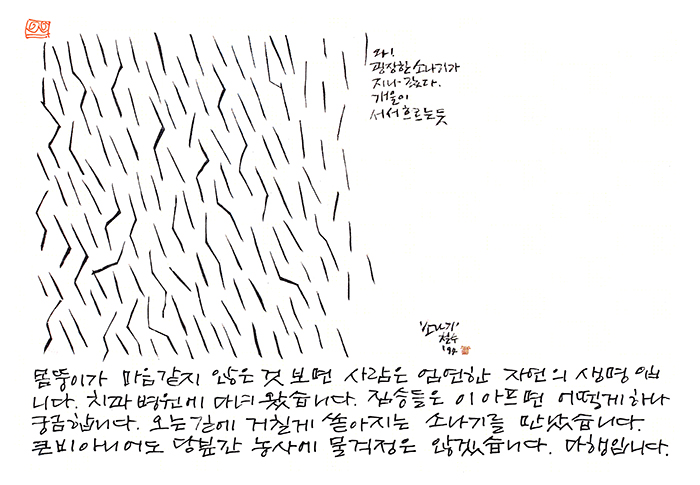 와!
굉장한 소나기가
지나 갔다.
개울이
서서 흐르는듯
'소나기'
철수
'94
몸뚱이가 마음같지 않은 것 보면 사람은 엄연한 자연의 생명입
니다. 치과병원에 다녀왔습니다. 짐승들은 이 아프면 어떻게 하나
궁금합니다. 오는길에 거칠게 쏟아지는 소나기를 만났습니다.
큰비아니어도 당분간 농사에 물걱정은 않겠습니다. 다행입니다.